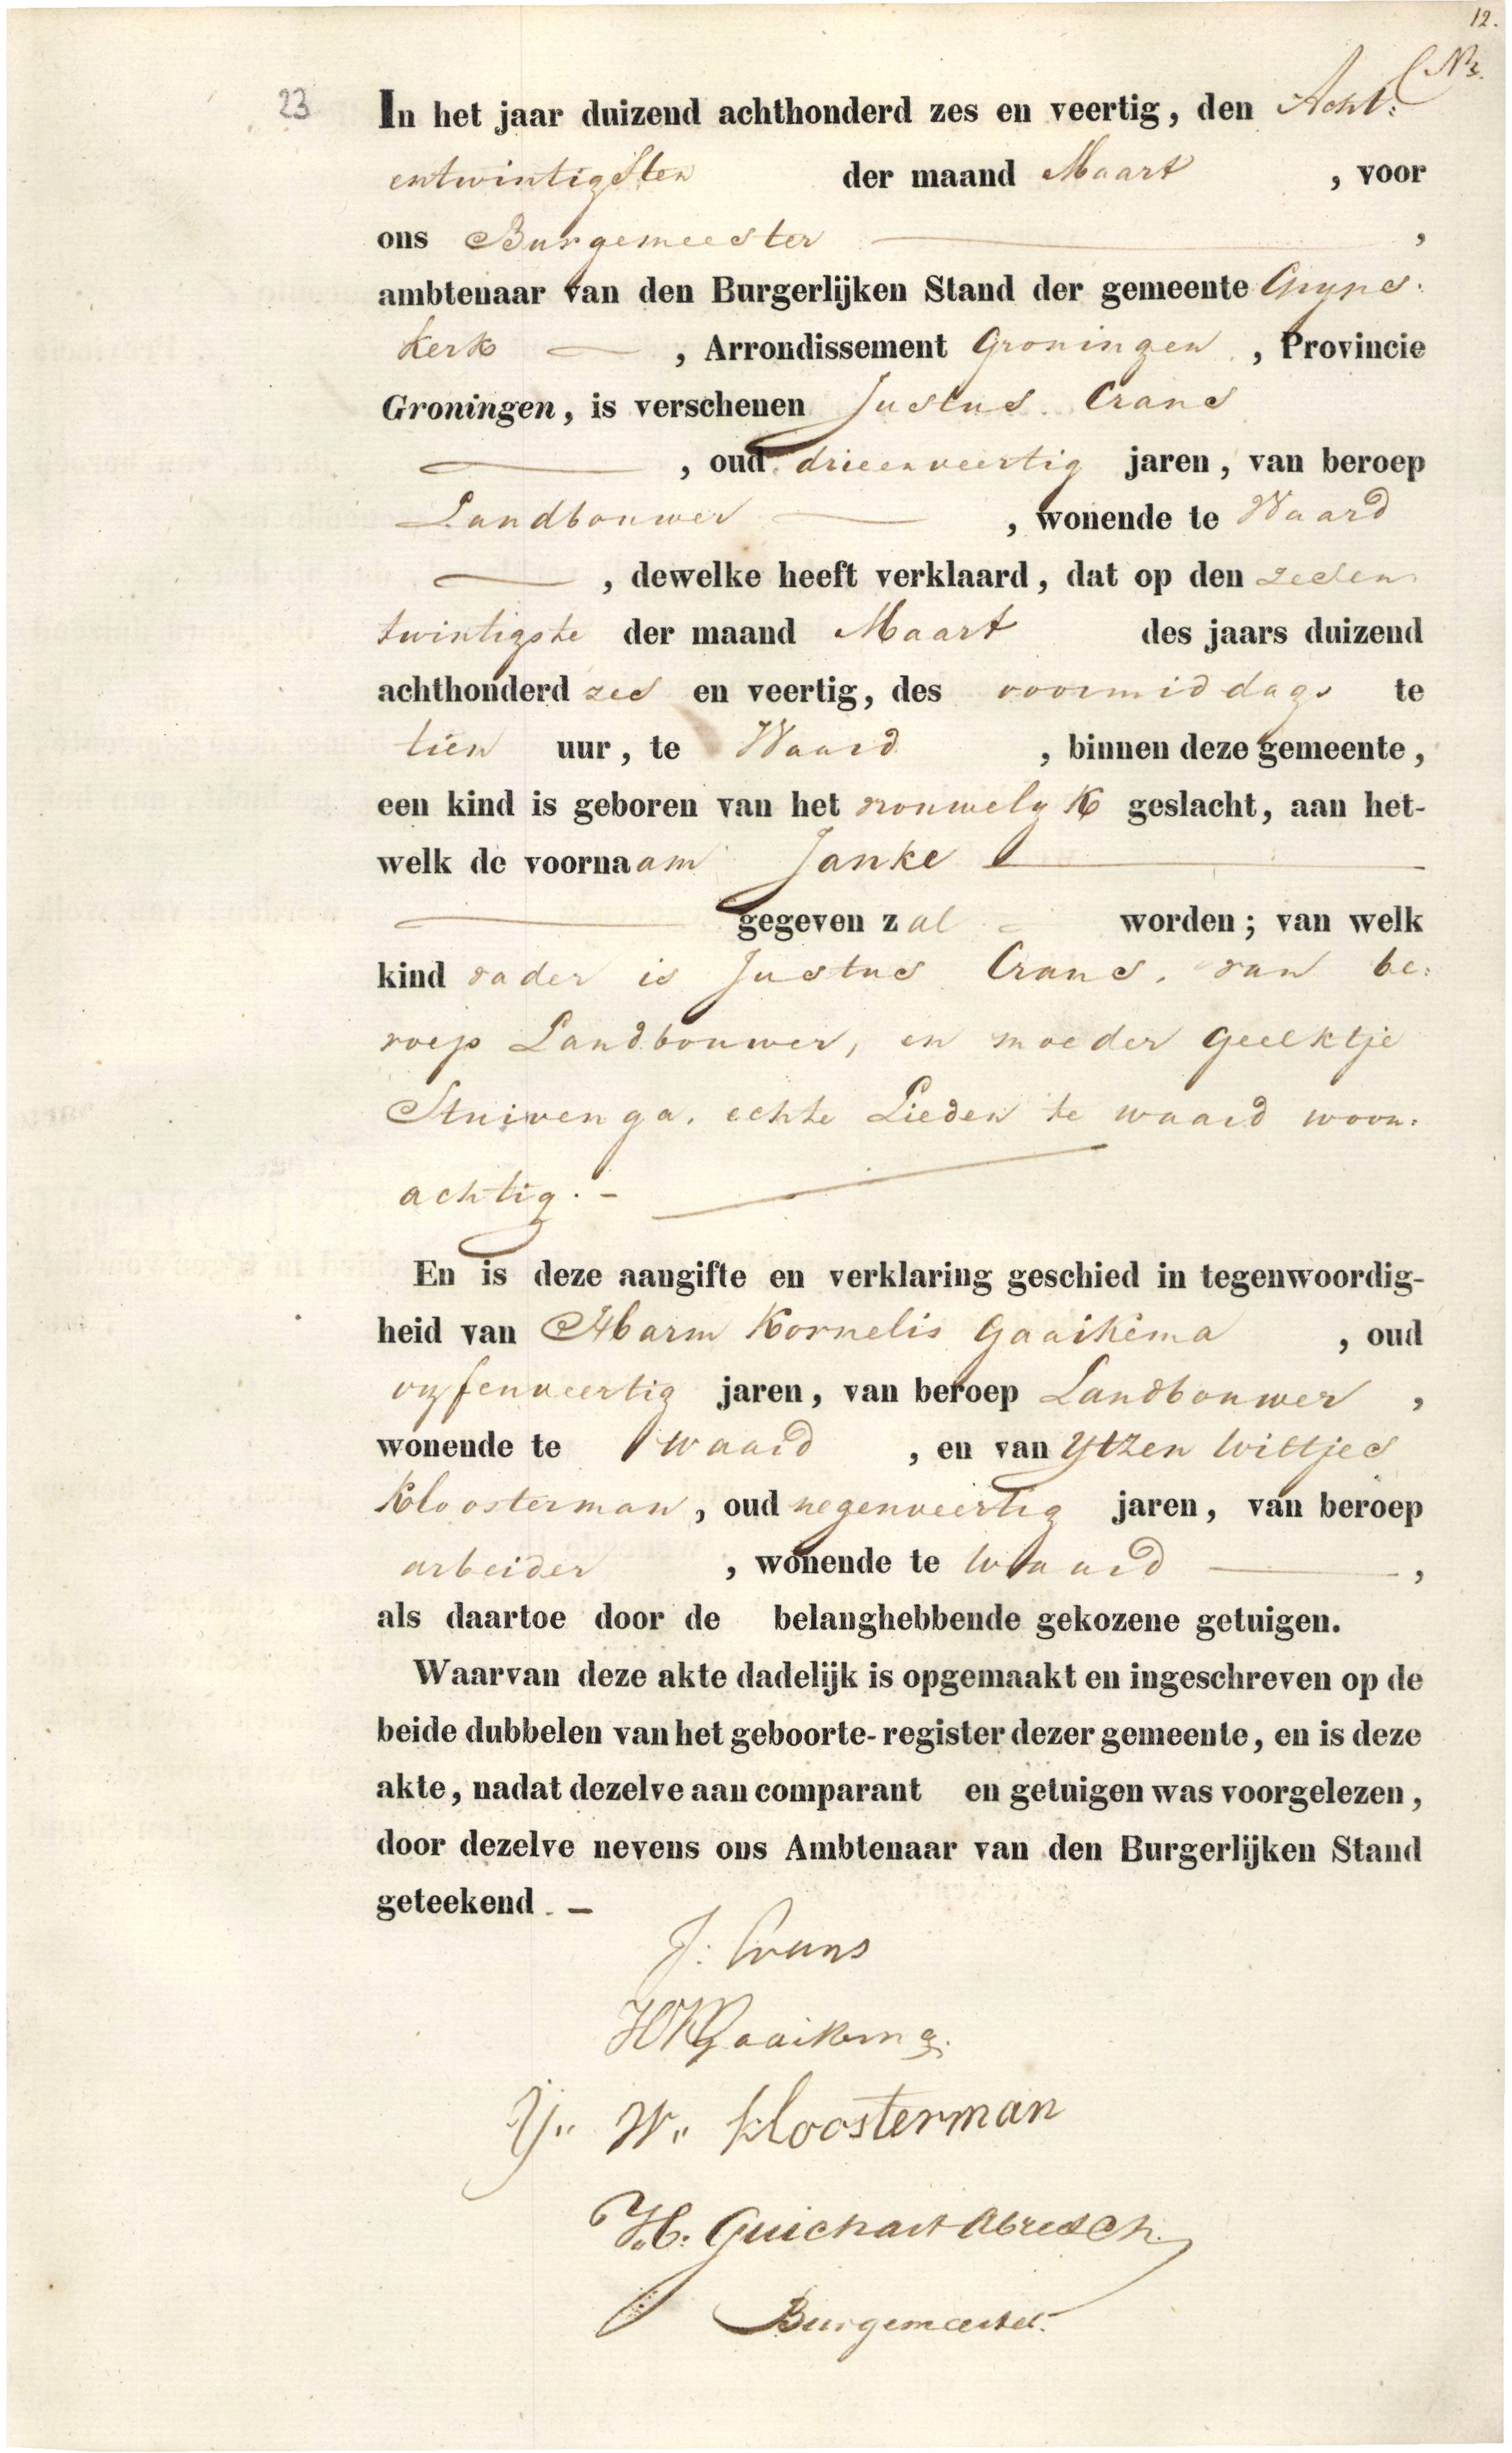 12.
23
In het jaar duizend achthonderd zes en veertig, den Acht:
entwintigsten der maand Maart , voor
ons Burgemeester ,
ambtenaar van den Burgerlijken Stand der gemeente Gryps:
kerk , Arrondissement Groningen , Provincie
Groningen, is verschenen Justus Crans
, oud drieenveertig jaren, van beroep
Landbouwer , wonende te Waard
, dewelke heeft verklaard, dat op den zesen
twintigste der maand Maart des jaars duizend
achthonderd zes en veertig, des voormiddags te
tien uur, te Waard , binnen deze gemeente,
een kind is geboren van het vrouwelyk geslacht, aan het-
welk de voornaam Janke
gegeven zal worden; van welk
kind vader is Justus Crans, van be:
roep Landbouwer, en moeder Geelktje
Stuivenga, echte Lieden te waard woon:
achtig. -
En is deze aangifte en verklaring geschied in tegenwoordig-
heid van Harm Kornelis Gaaikema , oud
vyfenveertig jaren, van beroep Landbouwer ,
wonende te waard , en van Ytzen Wiltjes
Kloosterman, oud negenveertig jaren, van beroep
arbeider , wonende te Waard ,
als daartoe door de belanghebbende gekozene getuigen.
Waarvan deze akte dadelijk is opgemaakt en ingeschreven op de
beide dubbelen van het geboorte-register dezer gemeente, en is deze
akte, nadat dezelve aan comparant en getuigen was voorgelezen,
door dezelve nevens ons Ambtenaar van den Burgerlijken Stand
geteekend. -
J: Crans
HKGaaikema
Y" W" kloosterman
H. Guichart Abresch
Burgemeester.